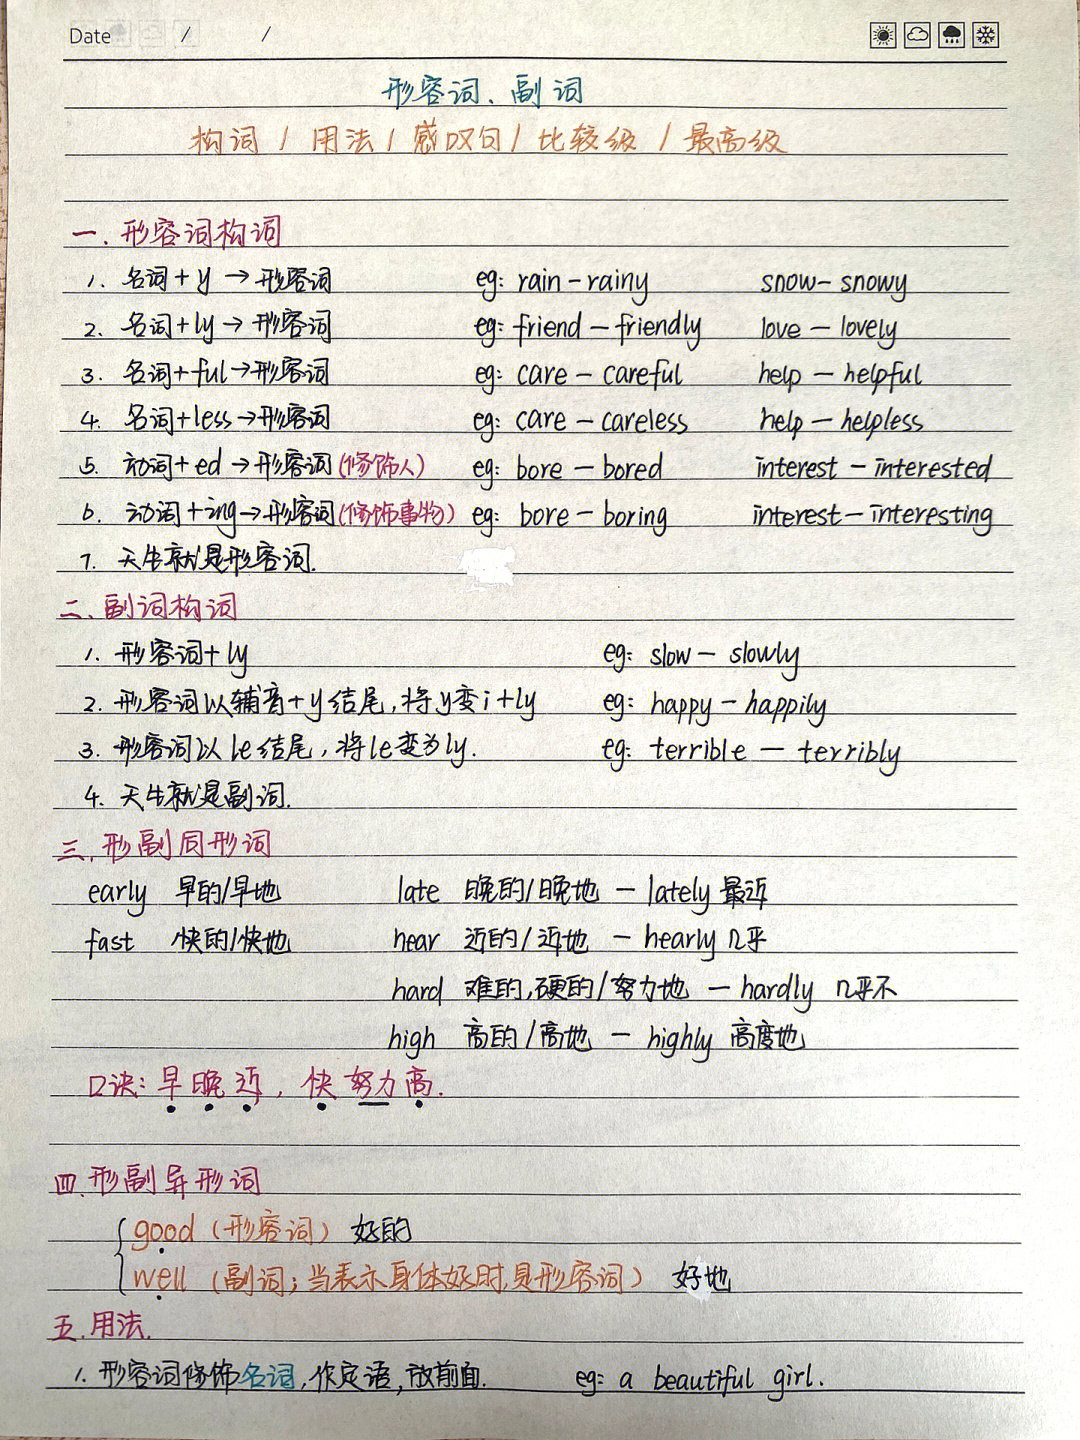 Date / /
形容词、副词
构词 / 用法 / 感叹句 / 比较级 / 最高级
一. 形容词构词
1. 名词+y→形容词 eg: rain-rainy snow-snowy
2. 名词+ly→形容词 eg: friend-friendly love-lovely
3. 名词+ful→形容词 eg: care-careful help-helpful
4. 名词+less→形容词 eg: care-careless help-helpless
5. 动词+ed→形容词(修饰人) eg: bore-bored interest-interested
6. 动词+ing→形容词(修饰事物) eg: bore-boring interest-interesting
7. 天生就是形容词.
二. 副词构词
1. 形容词+ly eg: slow-slowly
2. 形容词以辅音+y结尾,将y变i+ly eg: happy-happily
3. 形容词以le结尾,将le变为ly. eg: terrible-terribly
4. 天生就是副词.
三. 形副同形词
early 早的/早地 late 晚的/晚地-lately 最近
fast 快的/快地 near 近的/近地-nearly 几乎
hard 难的,硬的/努力地-hardly 几乎不
high 高的/高地-highly 高度地
口诀: 早晚近, 快努力高.
四. 形副异形词
good (形容词) 好的
well (副词;当表示身体好时,是形容词) 好地
五. 用法.
1. 形容词修饰名词,作定语,放前面. eg: a beautiful girl.